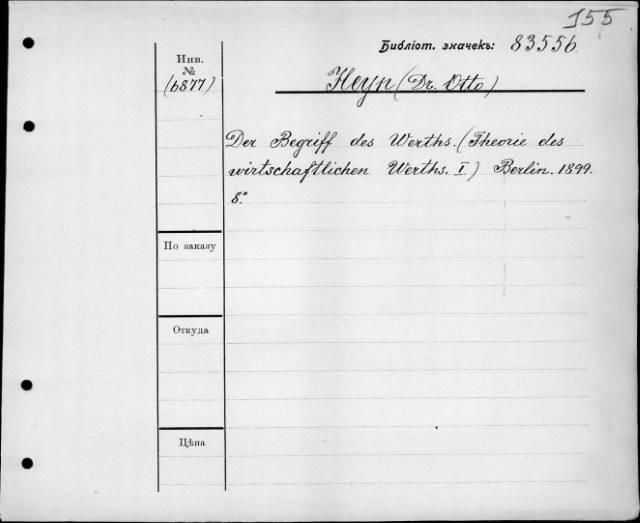 155
Библіот. значекъ: 83556.
Инв.
№
(6877)
Heyn (Dr. Otto)
Der Begriff des Werths. (Theorie des
wirtschaftlichen Werths. I.) Berlin. 1899.
8.°
По заказу
Откуда
Цѣна